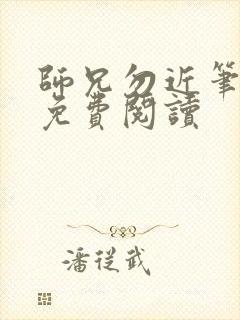 師兄勿近筆
免費閱讀
潘從武